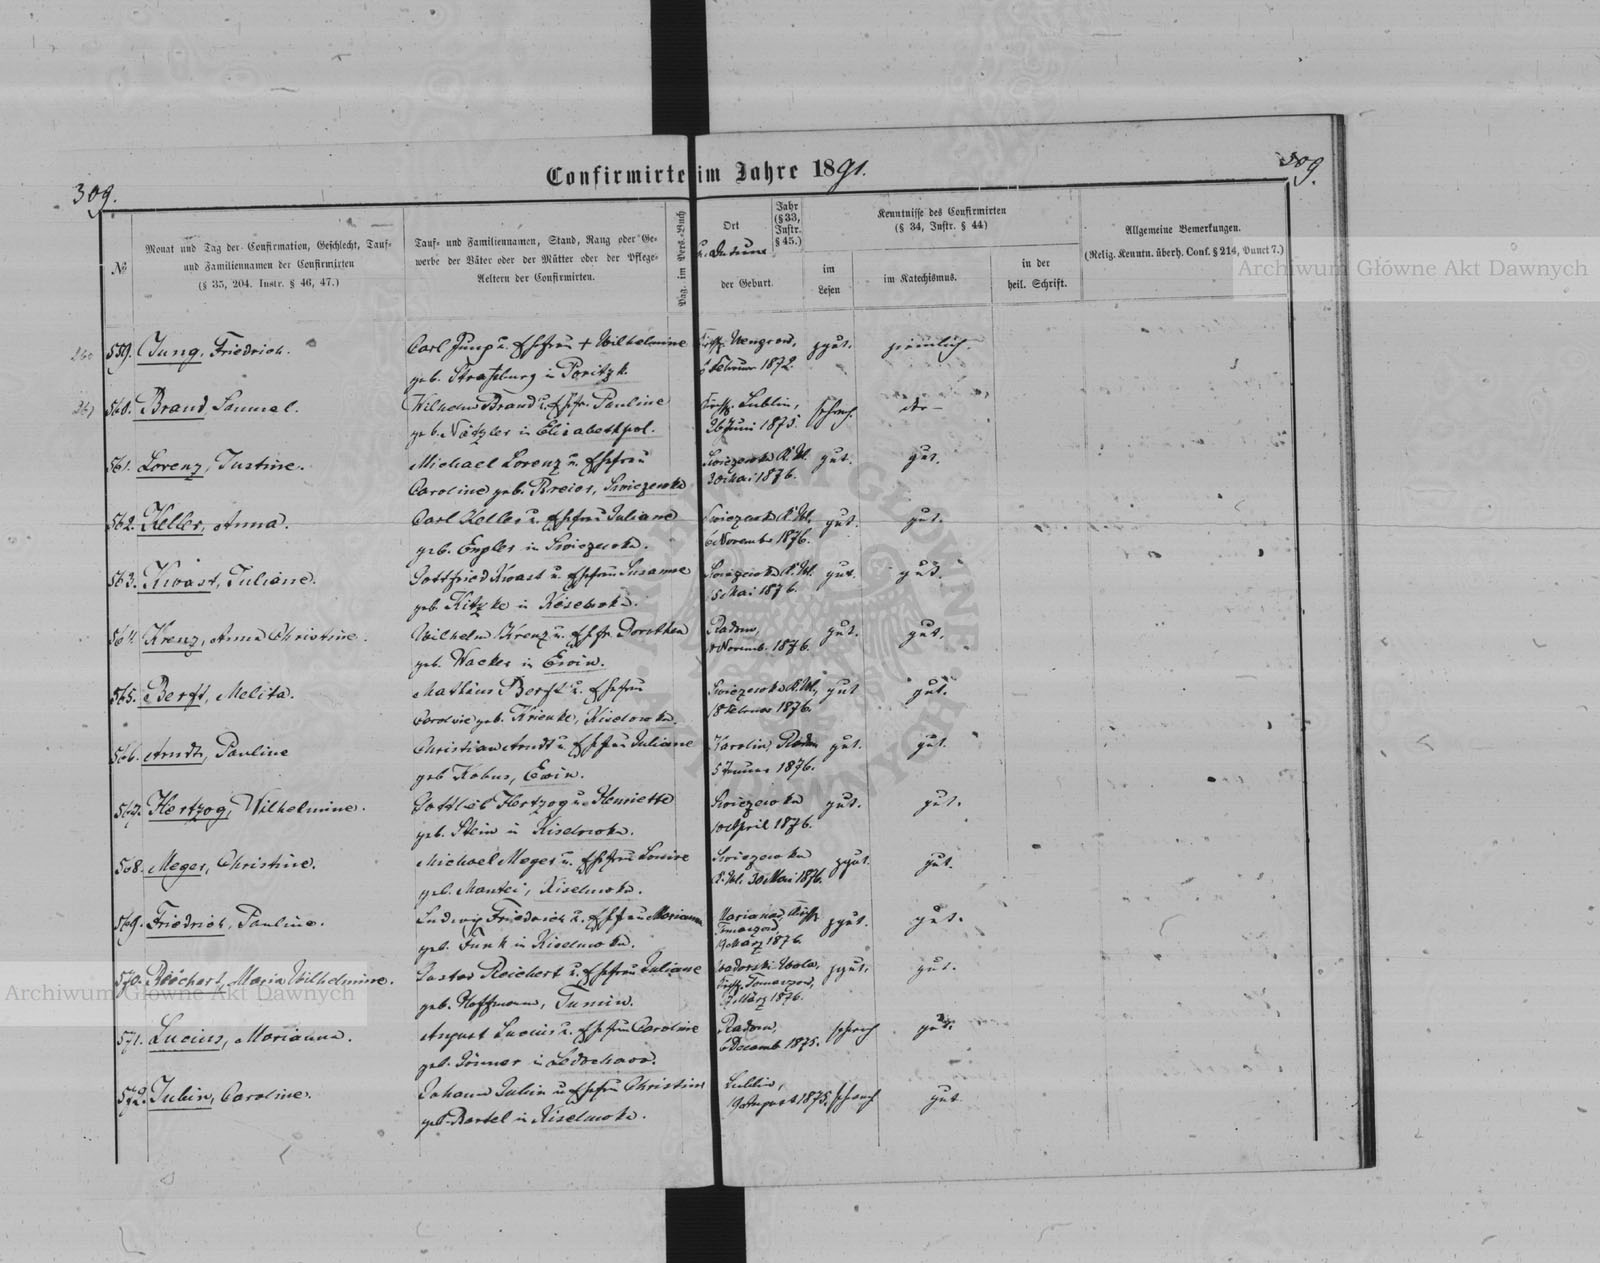 309.
Confirmirte im Jahre 1891.
309.
№
Monat und Tag der Confirmation, Geschlecht, Tauf-
und Familiennamen der Confirmirten
(§ 35, 204. Instr. § 46, 47.)
Tauf- und Familiennamen, Stand, Rang oder Ge-
werbe der Väter oder der Mütter oder der Pflege-
Aeltern der Confirmirten.
Pag. im Pers.-Buch
Ort
u. Datum
der Geburt.
Jahr
(§ 33,
Instr.
§ 45.)
Kenntnisse des Confirmirten
(§ 34, Instr. § 44)
im
Lesen
im Katechismus.
in der
heil. Schrift.
Allgemeine Bemerkungen.
(Relig. Kenntn. überh. Conf. § 214, Punct 7.)
Archiwum Główne Akt Dawnych
559. Jung, Friedrich.
Carl Jung u. Ehefrau + Wilhelmine
geb. Straßburg in Poritzk.
Wengrow,
Februar 1872.
zgut.
ziemlich.
560. Brand Samuel.
Wilhelm Brand u. Ehefr. Pauline
geb. Nätzler in Elisabethpol.
Lublin,
26 Juni 1875.
schwach.
561. Lorenz, Justine.
Michael Lorenz u. Ehefrau
Caroline geb. Breier, Swiezewka
Swiezewka
30 Mai 1876.
gut.
gut.
562. Keller, Anna.
Carl Keller u. Ehefrau Juliane
geb. Engler in Swiezewka.
Swiezewka
6 November 1876.
gut.
gut.
563. Kwast, Juliane.
Gottfried Kwast u. Ehefrau Susanne
geb. Kitzke in Kiselewka.
Swiezewka
15 Mai 1876.
gut.
gut.
564. Krenz, Anna Christine.
Wilhelm Krenz u. Ehefr. Dorothea
geb. Wacker in Ewin.
Radom,
Novemb. 1876.
gut.
gut.
565. Berft, Melita.
Mathäus Berft u. Ehefrau
geb. Krienke, Kiselowka.
Swiezewka
18 Februar 1876.
gut
gut.
566. Arndt, Pauline
Christian Arndt u. Ehefrau Juliane
geb. Kobus, Ewin.
Karolin, Radom
5 Januar 1876.
gut.
gut.
567. Hertzog, Wilhelmine.
Gottlieb Hertzog u. Henriette
geb. Stein in Kiselowka.
Swiezewka
10 April 1876.
gut.
gut.
568. Meger, Christine.
Michael Meger u. Ehefrau Louise
geb. Mantei, Kiselowka.
Swiezewka
30 Mai 1876.
zgut.
gut.
569. Friedrich, Pauline.
Ludwig Friedrich u. Ehefrau Marianna
geb. Funk in Kiselowka.
März 1876.
zgut.
gut.
570. Reichert, Maria Wilhelmine.
Gustav Reichert u. Ehefrau Juliane
geb. Hoffmann, Tumin.
Wola,
März 1876.
zgut.
gut.
Archiwum Główne Akt Dawnych
571. Lucius, Marianna.
August Lucius u. Ehefrau Caroline
geb. Jönner in Ledochow.
Radom,
6 Decemb 1875.
schwach
gut.
572. Julin, Caroline.
Johann Julin u. Ehefrau Christine
geb. Bartel in Kiselowka.
Lublin,
19 August 1875.
schwach
gut